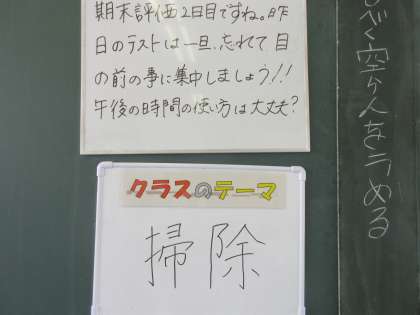 期末評価2日目ですね。昨
日のテストは一旦、忘れて目
の前の事に集中しましょう!!
午後の時間の使い方は大丈夫?
クラスのテーマ
掃除